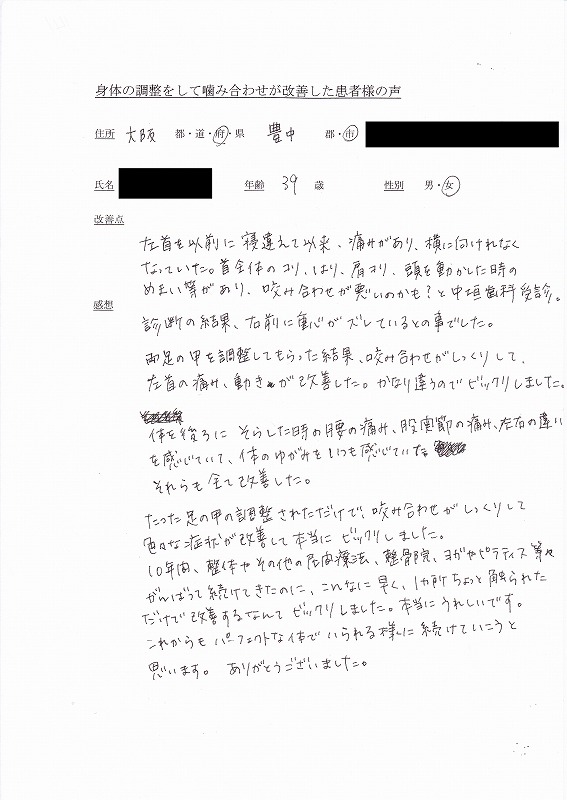 身体の調整をして噛み合わせが改善した患者様の声
住所 大阪 都・道・府・県 豊中 郡・市
氏名 年齢 39 歳 性別 男・女
改善点
左首を以前に寝違えて以来、痛みがあり、横に向けれなく
なっていた。首全体のコリ、はり、肩コリ、頭を動かした時の
めまい等があり、咬み合わせが悪いのかも?と中垣歯科受診。
感想
診断の結果、右前に重心がズレているとの事でした。
両足の甲を調整してもらった結果、咬み合わせがしっくりして、
左首の痛み、動きが改善した。かなり違うのでビックリしました。
体を後ろにそらした時の腰の痛み、股関節の痛み、左右の違い
を感じていて、体のゆがみをいつも感じていた
それらも全て改善した。
たった足の甲の調整されただけで、咬み合わせがしっくりして
色々な症状が改善して本当にビックリしました。
10年間、整体やその他の民間療法、整骨院、ヨガやピラティス等々
がんばって続けてきたのに、こんなに早く、1カ所ちょっと触られた
だけで改善するなんてビックリしました。本当にうれしいです。
これからもパーフェクトな体でいられる様に続けていこうと
思います。ありがとうございました。